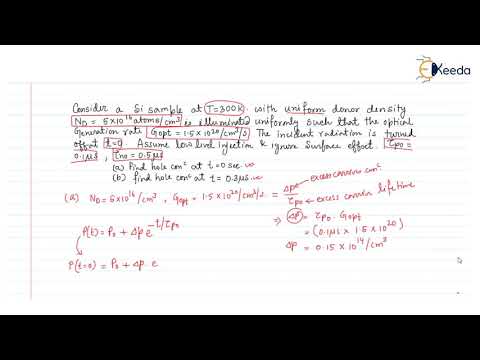 Ekeeda
Consider a Si sample at T=300K with uniform donor density
ND = 5×10^16 atoms/cm³ is illuminated uniformly such that the optical
Generation rate Gopt = 1.5×10^20/cm³/s. The incident radiation is turned
off at t=0. Assume low level injection & ignore surface effect. τpo =
0.1μs, τno = 0.5μs
(a) Find hole conc^n at t=0 sec.
(b) find hole conc^n at t = 0.3μs.
(a) ND = 5×10^16/cm³, Gopt = 1.5×10^20/cm³/s = Δp/τpo
→ excess carrier conc^n
→ excess carrier lifetime
⇒ Δp = τpo · Gopt
P(t) = P0 + Δp e^-t/τpo
= (0.1μs × 1.5×10^20)
Δp = 0.15 × 10^14/cm³
P(t=0) = P0 + Δp. e